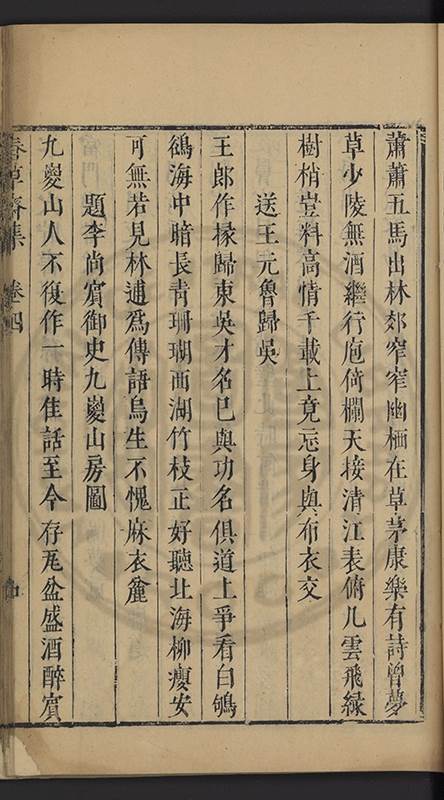 蕭蕭五馬出林郊窄窄幽栖在草茅康樂有詩曾夢
草少陵無酒繼行庖倚欄天接清江表俯几雲飛綠
樹梢豈料高情千載上竟忘身與布衣交
送王元魯歸吳
王郎作掾歸東吳才名已與功名俱道上爭看白鴝
鵒海中暗長青珊瑚西湖竹枝正好聽北海柳癭安
可無若見林逋爲傳語烏生不愧麻衣麄
題李尚賓御史九夔山房圖
九夔山人不復作一時佳話至今存瓦盆盛酒醉賓
春草齋集 卷四